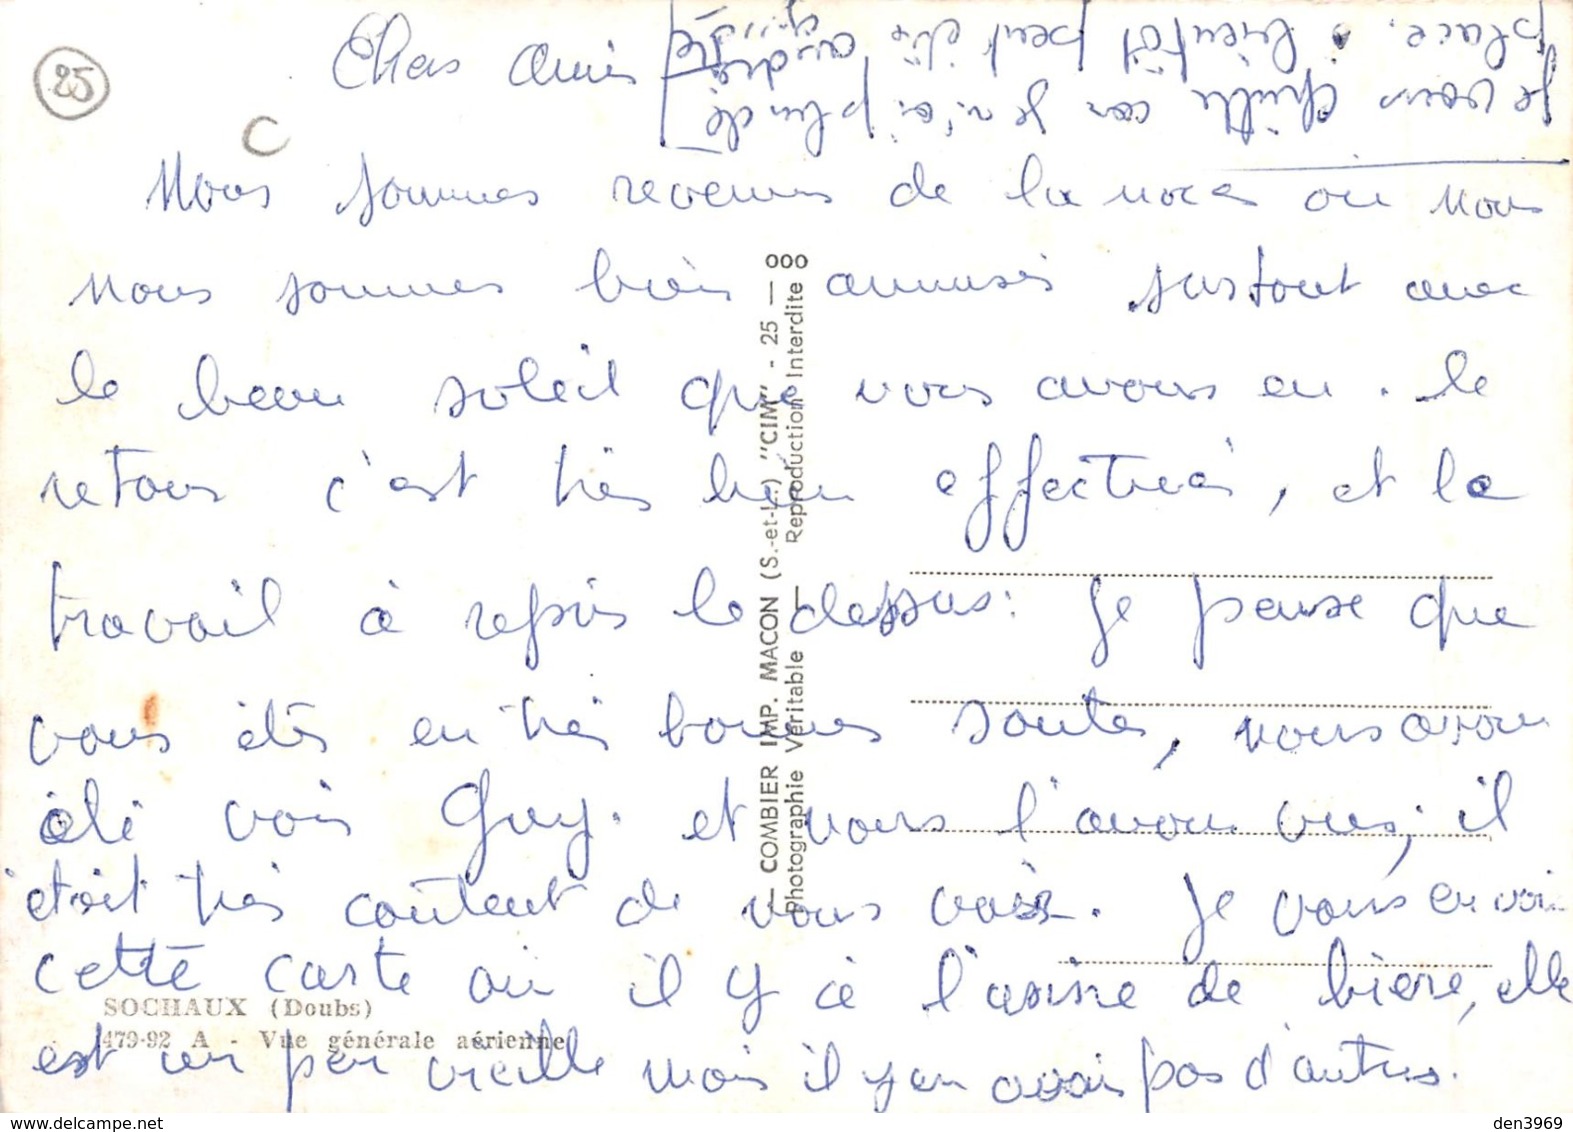 25
C
Chers Amis
Nous sommes revenus de la noce ou nous
nous sommes bien amusés surtout avec
le beau soleil que nous avons eu. le
retour c'est très bien effectués, et le
travail à repris le dessus. Je pense que
vous étés en très bonnes santés, nous avons
été voir Guy. et nous l'avons vus, il
était très content de nous voir. Je vous envoi
cette carte ou il y à l'usine de bière, elle
est un peu vieille mais il y en avais pas d'autres.
Je vous quitte car je n'ai plus de
place. bientôt peut être
andré
SOCHAUX (Doubs)
479-92 A - Vue générale aérienne
— COMBIER IMP. MACON (S.-et-L.) "CIM" - 25 — 000
Photographie Véritable — Reproduction Interdite
delcampe.net
den3969